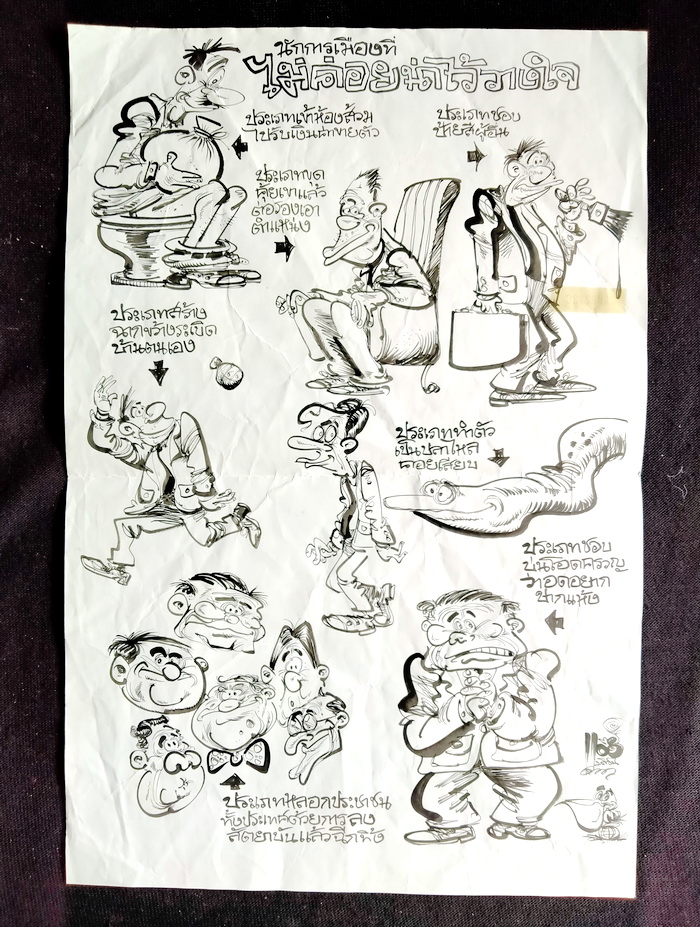 นักการเมืองที่
ไม่ค่อยน่าไว้วางใจ
ประเภทเข้าห้องส้วม
ไปรับเงินมาขายตัว
ประเภทชอบ
ป้ายสีผู้อื่น
ประเภทขุด
คุ้ยเขาแล้ว
ต่อรองเอา
ตำแหน่ง
ประเภทสร้าง
ฉากขว้างระเบิด
บ้านตนเอง
ประเภททำตัว
เป็นปลาไหล
คอยเสียบ
ประเภทชอบ
บ่นโอดครวญ
ว่าอดอยาก
ปากแห้ง
ประเภทหลอกประชาชน
ทั้งประเทศด้วยการลง
สัตยาบันแล้วฉีกทิ้ง